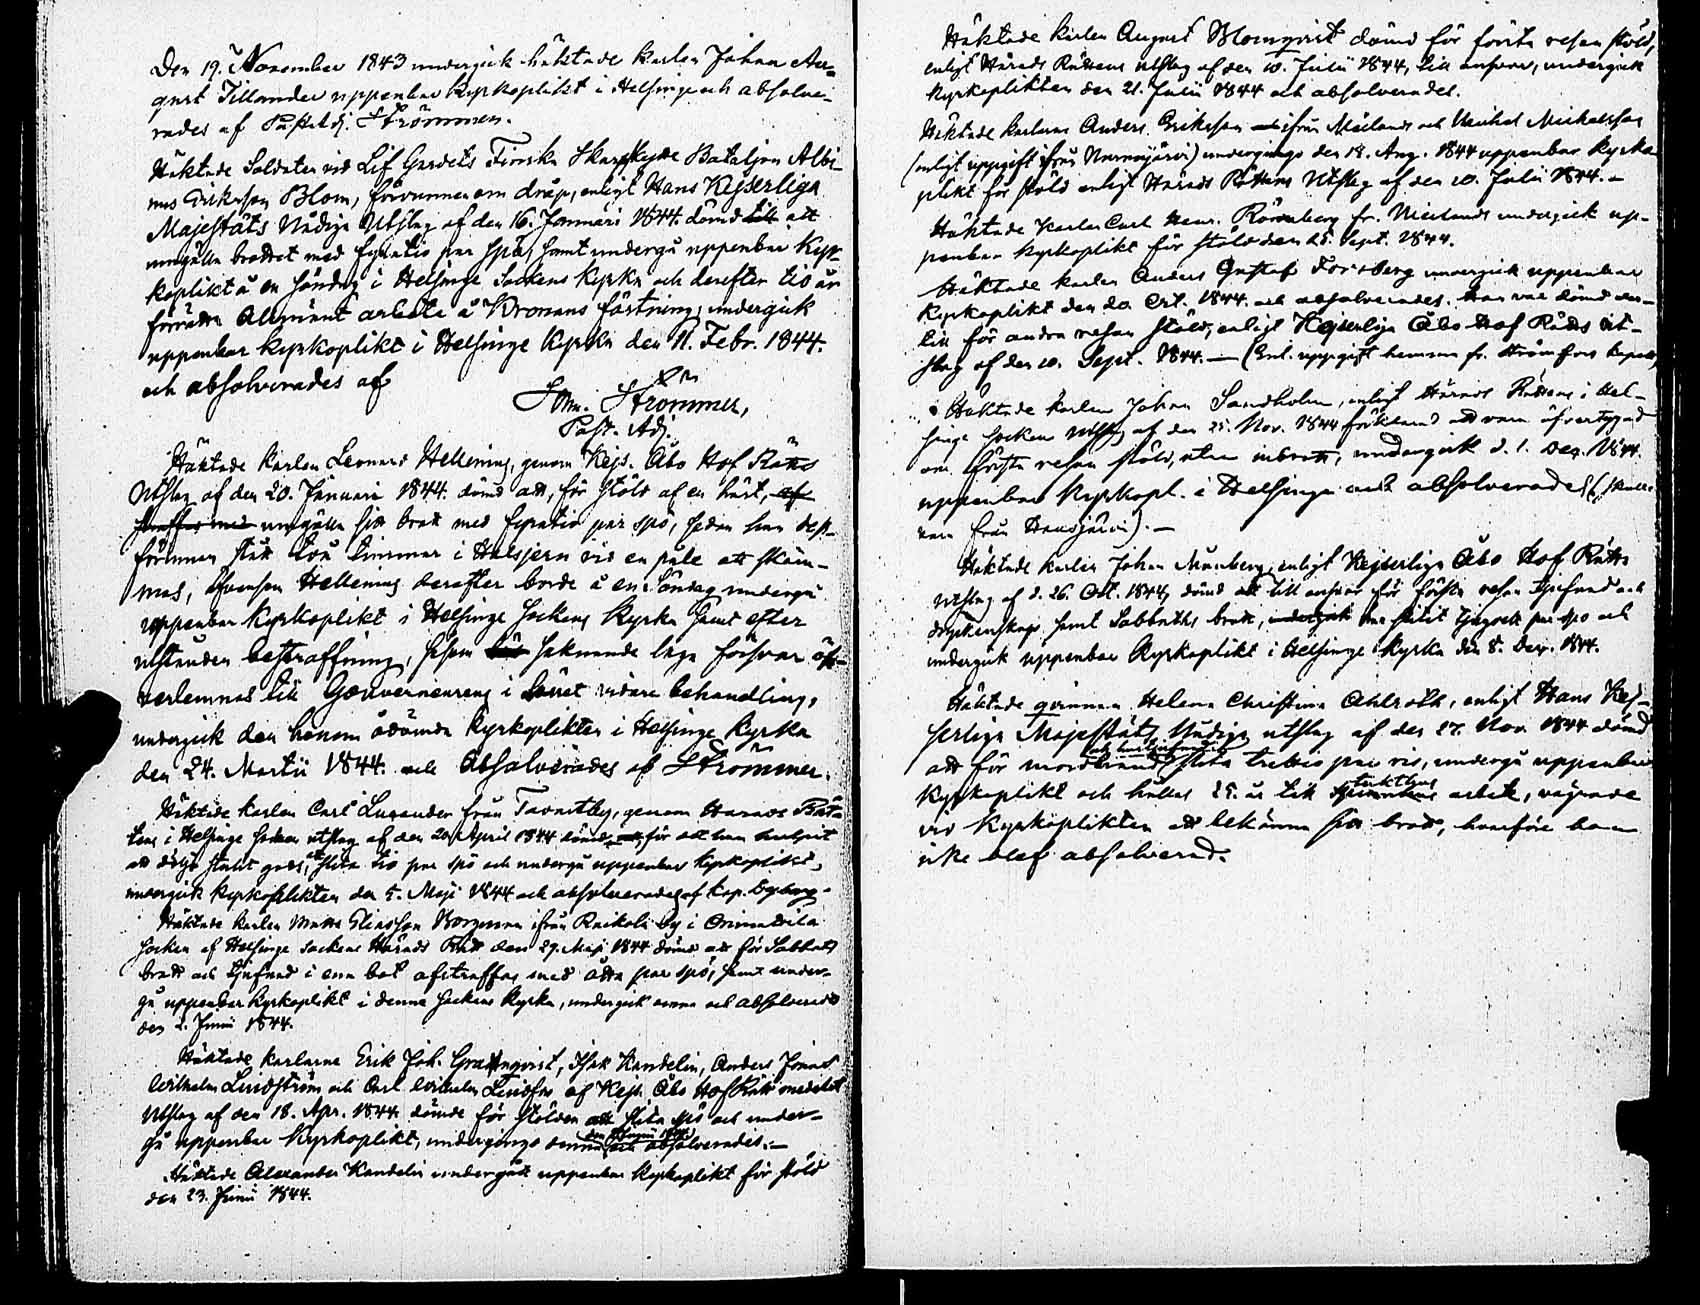 Den 19. November 1843 undergick häktade karlen Johan Au-
gust Tillander uppenbar kyrkoplikt i Helsinge och absolve-
rades af Past. Adj. Strömmer.
Häktade Soldaten vid Lif Gardets Finska Skarpskytte Bataljon Albi-
nus Eriksson Blom, förvunnen om dråp, enligt Hans Kejserliga
Majestäts Nådiga Utslag af den 16. Januari 1844. dömd till att
umgälla brottet med fyratio par spö, samt undergå uppenbar Kyr-
koplikt å en Söndag i Helsinge Sockens Kyrka och derefter tio år
förrätta Allmänt arbete å Kronans fästning, undergick
uppenbar kyrkoplikt i Helsinge Kyrka den 11. Febr. 1844.
och absolverades af
Strömmer,
Past. Adj.
Häktade karlen Leonard Hellenius, genom Kejs. Åbo Hof Rätts
Utslag af den 20. Januari 1844. dömd att, för stöld af en häst, af-
straffas med umgälla sitt brott med fyratio par spö, sedan han dess-
förinnan stått två timmar i Halsjern vid en påle att skäm-
mas, hvarefter Hellenius derefter borde å en Söndag undergå
uppenbar Kyrkoplikt i Helsinge Sockens Kyrka samt efter
utstånden bestraffning, såsom saknande laga försvar öf-
verlemnas till Gouverneuren i Länet vidare behandling,
undergick den honom ådömda kyrkoplikten i Helsinge Kyrka
den 24. Martii 1844. och Absolverades af Strömmer.
Häktade karlen Carl Lurander från Tavastby, genom Härads Rät-
tens i Helsinge Socken utslag af den 20 April 1844 dömd att för det han hulpit
att dölja stulit gods, slita tio par spö och undergå uppenbar kyrkoplikt,
undergick kyrkoplikten den 5. Maji 1844 och absolverades af Kap. Dyberg.
Häktade karlen Matts Eliasson Norgman ifrån Raikola by i Orimattila
Socken af Helsinge sockens Härads Rätt den 29. Maji 1844 dömd att för Sabbats
brott och tjufnad i ena bot afstraffas med åtta par spö, samt under-
gå uppenbar kyrkoplikt i denna Sockens Kyrka, undergick denna och absolverades
den 2. Junii 1844.
Häktade karlarne Erik Joh. Granqvist, Isak Kandelin, Anders Jonas
Wilhelm Lindström och Carl Wilhelm Lindfors af Kejs. Åbo Hof Rätt medelst
Utslag af den 18. Apr. 1844 dömde för stölden att slita spö och under-
gå uppenbar Kyrkoplikt, undergingo denna den Junii 1844 och absolverades.—
Häktade Alexander Kandelin undergått uppenbar kyrkoplikt för stöld
den 23. Junii 1844.
Häktade karlen August Blomqvist dömd för första resan stöld,
enligt Härads Rättens utslag af den 10. Julii 1844, till ansvar, undergick
kyrkoplikten den 21. Julii 1844 och absolverades.
Häktade karlarne Anders Eriksson ifrån Mäiland och Michel Michelsson
(enligt uppgift ifrån Nurmijärvi) undergingo den 18. Aug. 1844 uppenbar kyrko-
plikt för stöld enligt Härads Rättens Utslag af den 10. Julii 1844.—
Häktade karlen Carl Henr. Rönnberg fr. undergick up-
penbar kyrkoplikt för stöld den 25. Sept. 1844.
Häktade karlen Anders Gustaf Forsberg undergick uppenbar
kyrkoplikt den 20. Oct. 1844. och absolverades. Han var dömd der-
till för andra resan stöld, enligt Kejserliga Åbo Hof Rätts Ut-
slag af den 10. Sept. 1844.— (Enl. uppgift hemma fr. Strömfors Kapell)
Häktade karlen Johan Sandholm, enligt Härads Rättens i Hel-
singe Socken Utslag af den 25. Nov. 1844 förklarad att vara öfvertygad
om första resan stöld, utan inbrott, undergick d. 1. Dec. 1844.
uppenbar Kyrkopl. i Helsinge och absolverades (skulle
vara från Hausjärvi).—
Häktade karlen Johan Munberg, enligt Kejserliga Åbo Hof Rätts
utslag af d. 26. Oct. 1844, dömd att till ansvar för första resan tjufnad och
dryckenskap samt Sabbaths brott, undergick har slitit tjugosex par spö och
undergick uppenbar Kyrkoplikt i Helsinge Kyrka den 8. Dec. 1844.
Häktade qvinnan Helena Christina Ahlroth, enligt Hans Kej-
serliga Majestäts Nådiga utslag af den 27. Nov. 1844 dömd
att för mordbrand slita trettio par ris, undergå uppenbar
Kyrkoplikt och hållas 25. år till tukthus arbete, vägrade
vid Kyrkoplikten att bekänna sitt brott, hvarföre hon
icke blef absolverad.